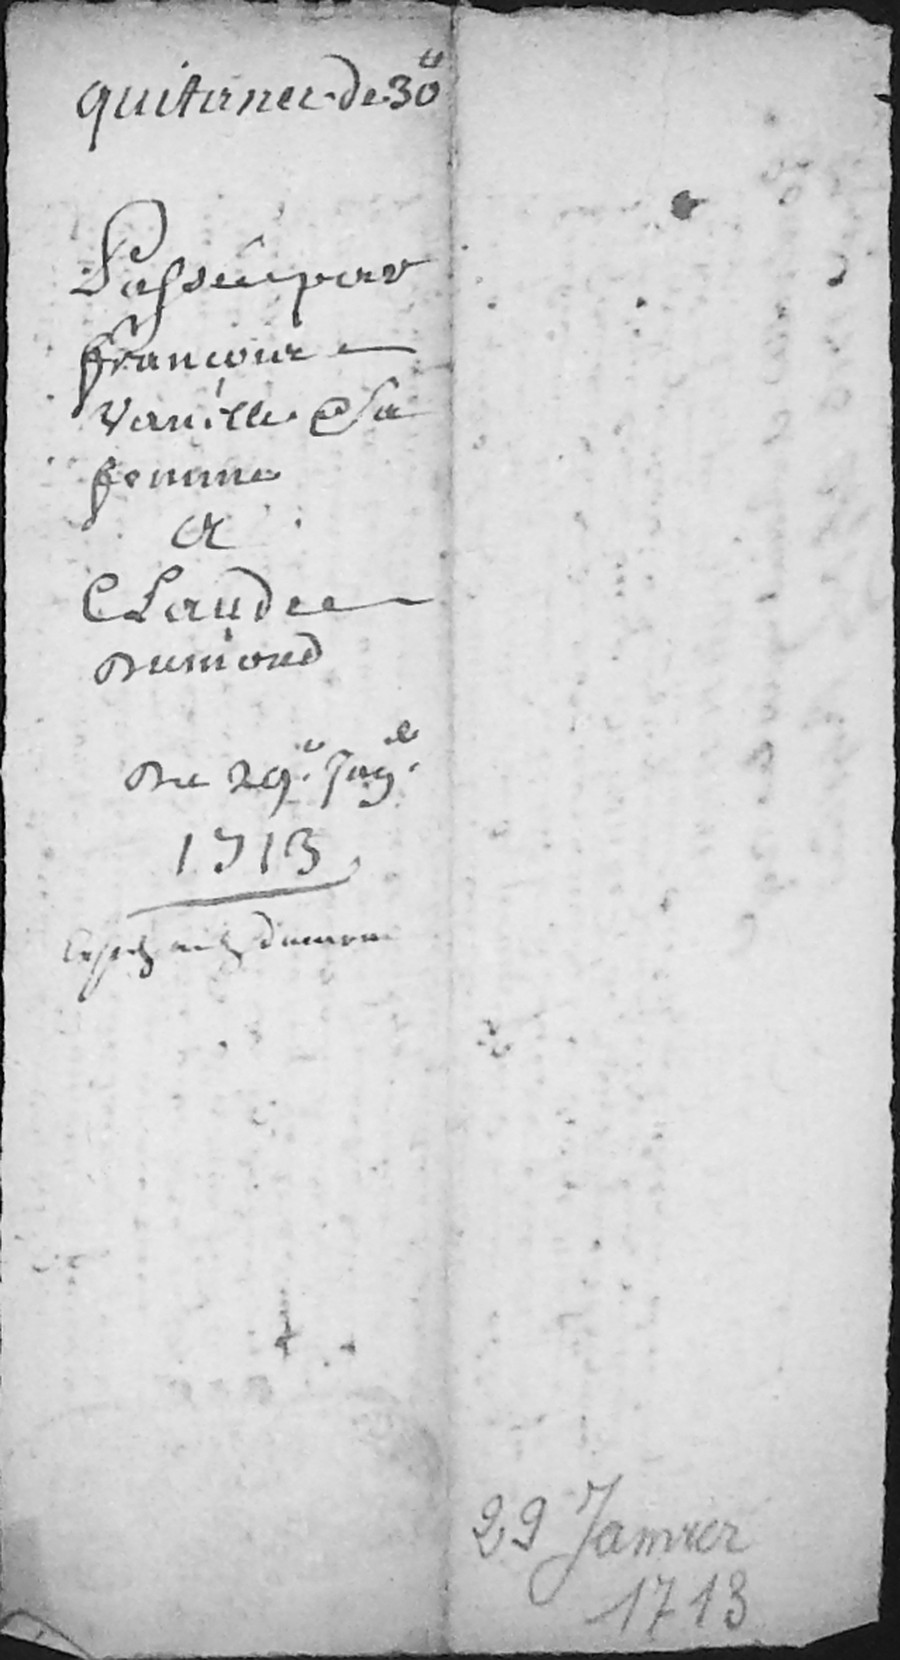 quitance de 30ᵗᵗ
Passée par
francoise
Vanille & Sa
femme
A
CLaude
Dumond
Du 29ᵉ. Jaῃ.
1713
29 Janvier
1713